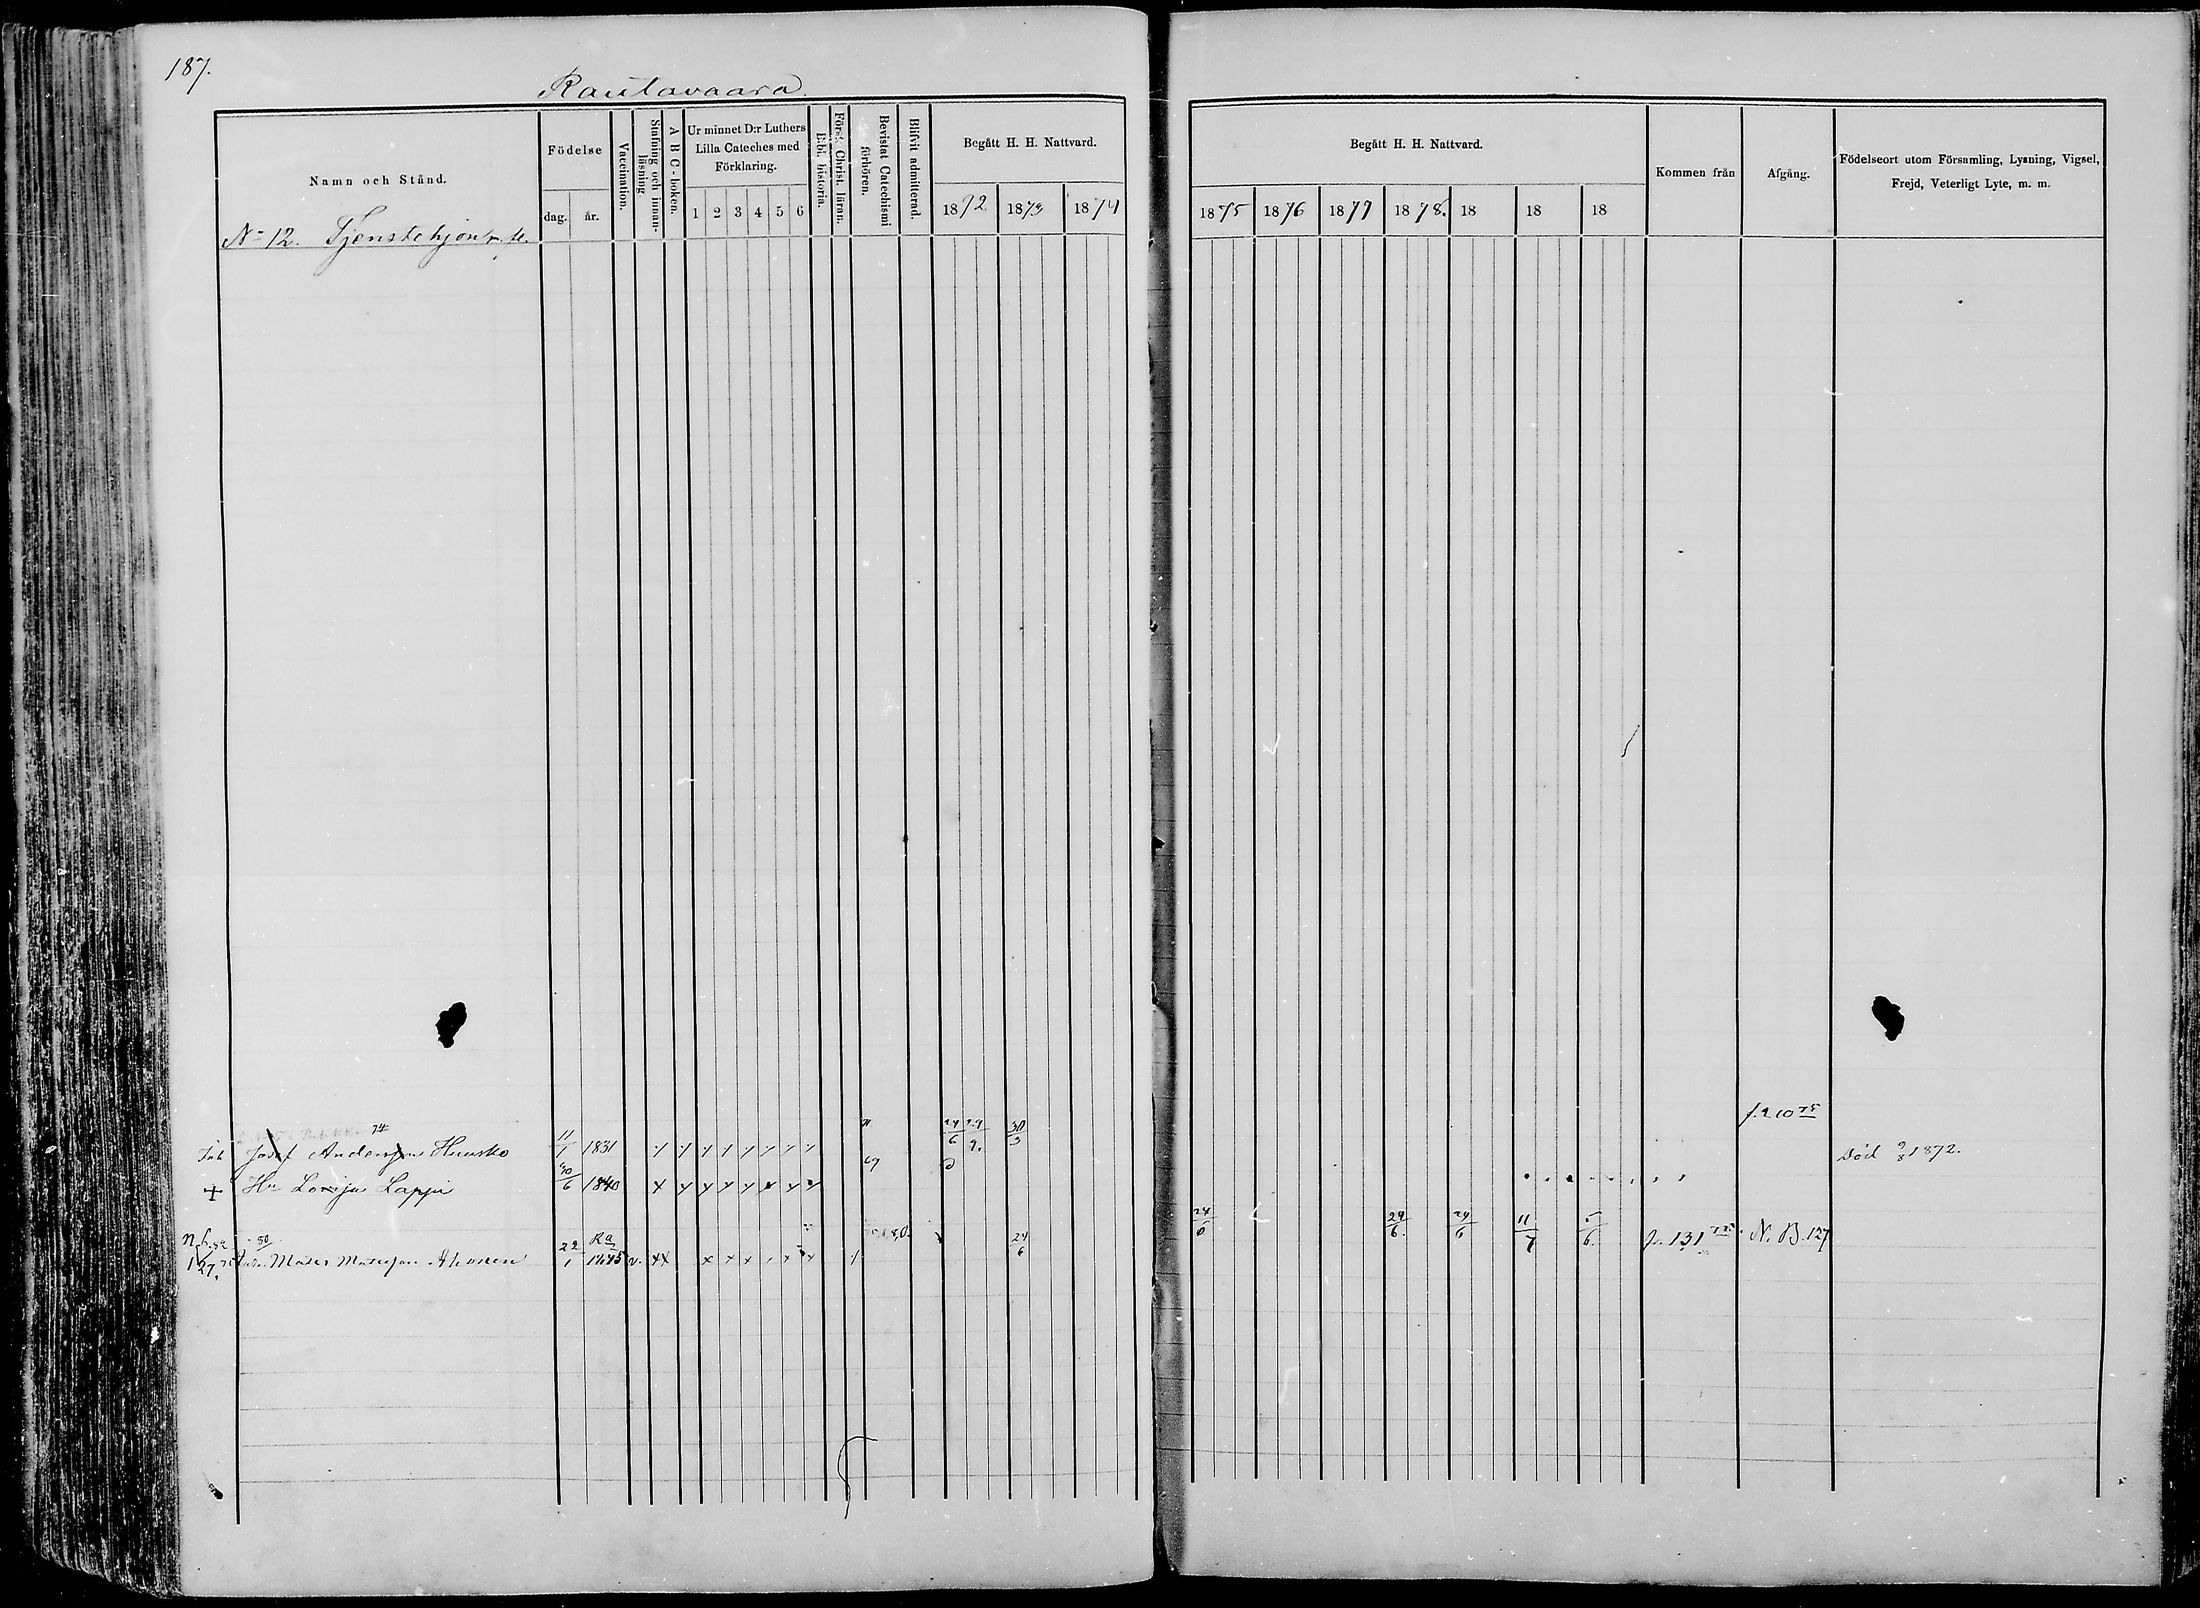 187.
Rautavaara
Namn och Stånd.
Födelse
dag.
år.
Vaccination.
Stafning och innanläsning
A B C-boken.
Ur minnet D:r Luthers Lilla Cateches med Förklaring.
1 2 3 4 5 6
Bibl. historia.
Först. Christ. läran.
Bevistat Catechismi förhören.
Blifvit admitterad.
Begått H. H. Nattvard.
1872 1873 1874
Begått H. H. Nattvard.
1875 1876 1877 1878. 18 18 18
Kommen från
Afgång.
Födelseort utom Församling, Lysning, Vigsel, Frejd, Veterligt Lyte, m. m.
No 12. Tjenstehjon
74
Josef Andersson Huusko 11/1 1831 24/6 30/3 f. 210 75
+ Hu Lovisa Lappi 30/6 1840 69 Död 9/8 1872.
80
Ra
127 Mats Matsson Ahonen 22/1 1845 v. 24/6 24/6 29/6. 24/6 11/7 5/6. p. 131 N. B. 127